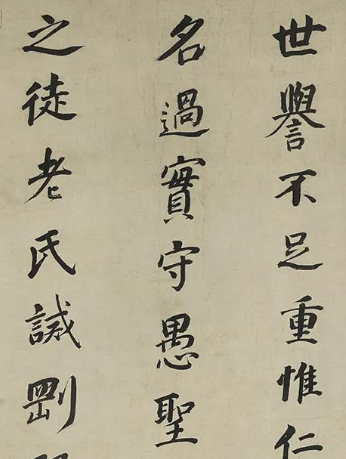 世譽不足重惟仁
名過實守愚聖
之徒老氏誡剛